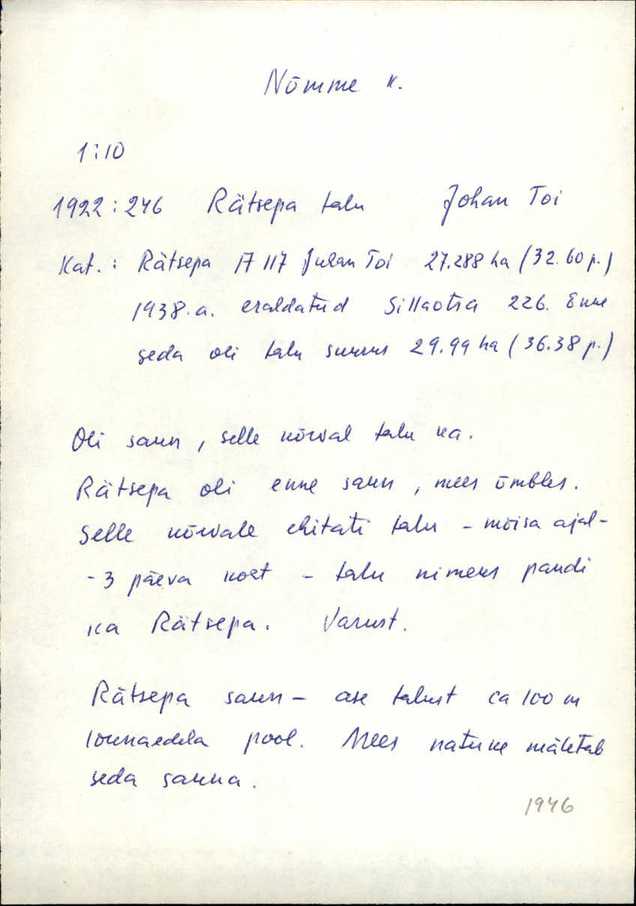 Nõmme k.
1:10
1922:246 Rätsepa talu Johan Toi
Kat.: Rätsepa 17 117 Juhan Toi 27.288 ha (32.60 p.)
1938.a. eraldatud Sillaotsa 226. Enne
seda oli talu suurus 29.99 ha (36.38 p.)
Oli saun, selle kõrval talu ka.
Rätsepa oli enne saun, mees õmbles.
Selle kõrvale ehitati talu - mõisa ajal -
- 3 päeva koht - talu nimeks pandi
ka Rätsepa. Varust.
Rätsepa saun - ase talust ca 100 m
lõunaedela pool. Mees natuke mäletab
seda sauna.
1946